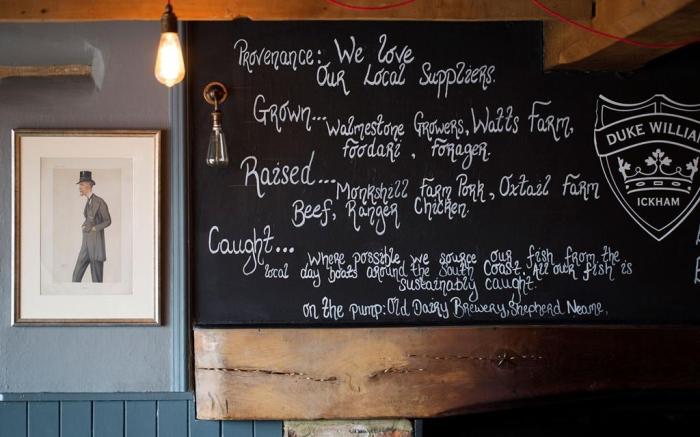 Provenance: We love
Our Local Suppliers.
Grown... Walmestone Growers, Watts Farm,
Foodari, Forager.
Raised... Monkshill Farm Pork, Oxtail Farm
Beef, Ranger Chicken.
Caught... Where possible, we source our fish from the
local day boats around the South Coast, All our fish is
sustainably caught.
on the pump: Old Dairy Brewery, Shepherd Neame,
DUKE WILLIA
ICKHAM